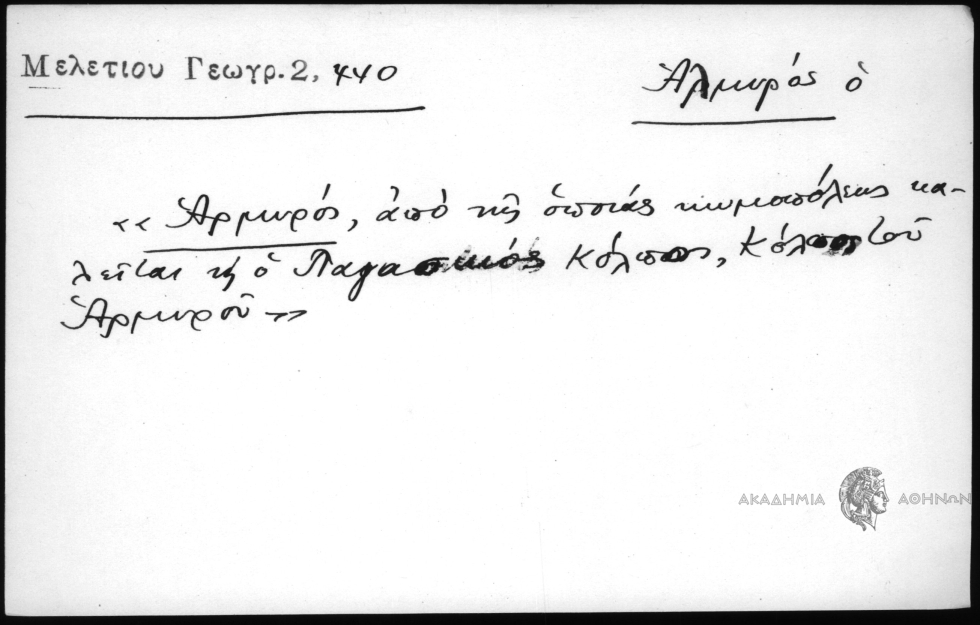 Μελετιου Γεωγρ. 2, 440
Ἁλμυρός ὁ
« Ἁρμυρός, ἀπό τῆς ὁποίας κωμοπόλεως κα-
λεῖται κ̀ ὁ Παγασικός κόλπος, κόλπος τοῦ
Ἁρμυροῦ »
ΑΚΑΔΗΜΙΑ ΑΘΗΝΩΝ